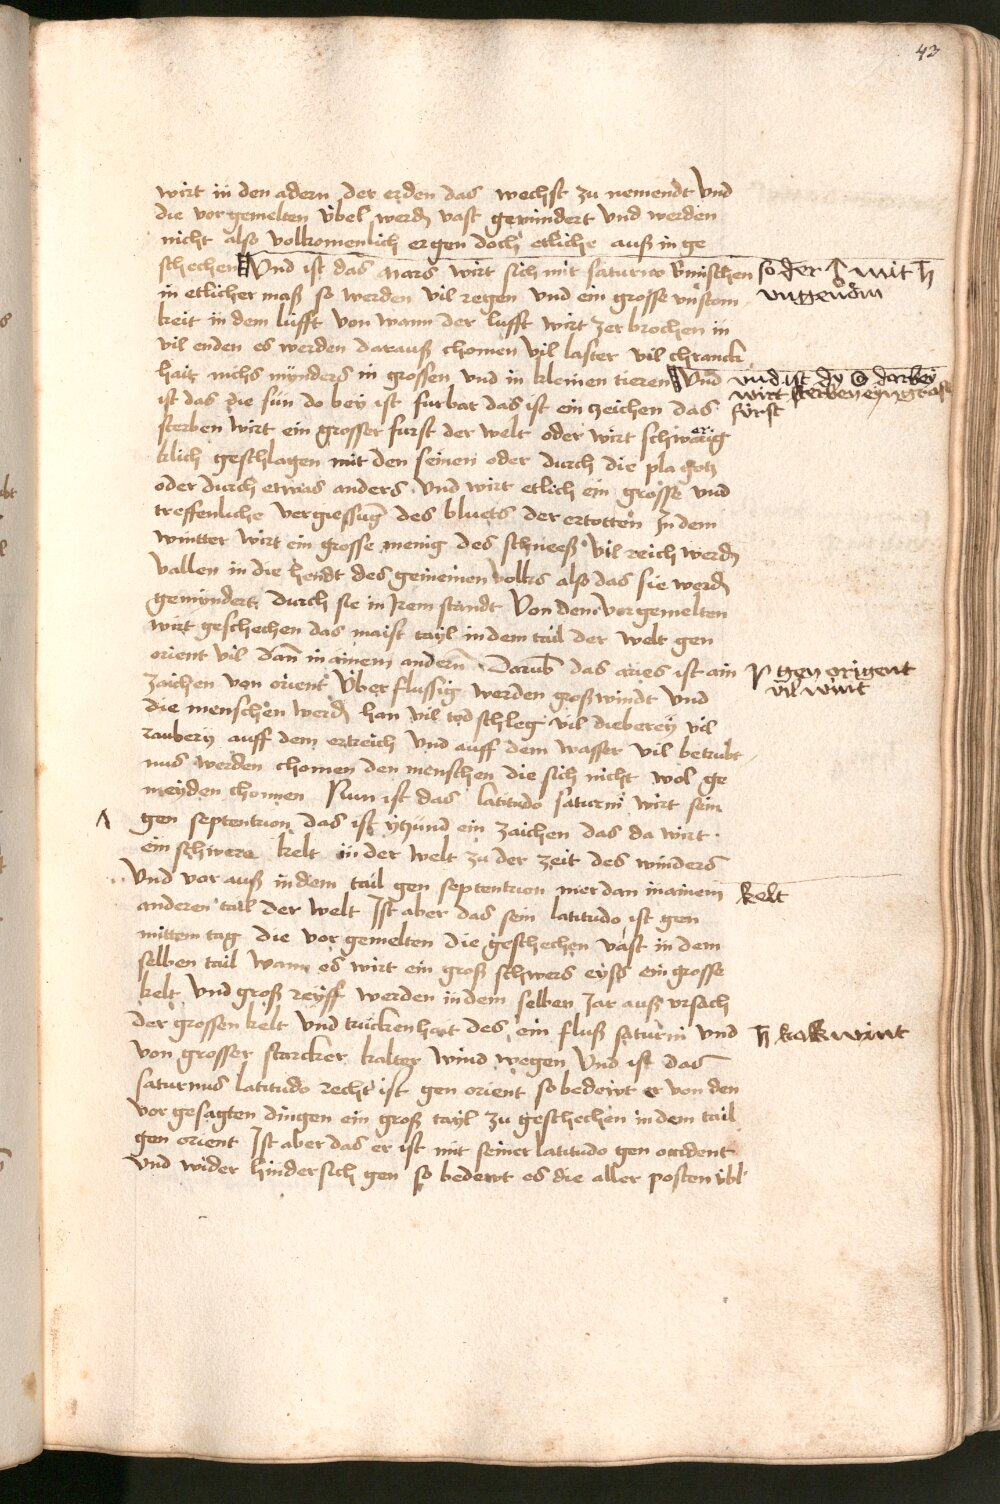 43
wirt in den adern der erden das wechst zu nemendt vnd
die vorgemelten vbel werdn vast gemindert vnd werden
nicht also volkomenlich ergen doch etliche auß in ge
schechen Vnd ist das mars wirt sich mit saturno vmischen
so der ♂ mit ♄
in etlicher maß so werden vil regen vnd ein grosse vnstom
vngeuom
keit in dem lufft von wann der lufft wirt zerbrochen in
vil enden es werden darauß chomen vil laster vil chranck
hait nichs mynders in grossen vnd in kleinen tieren Vnd
vnd ist dy ☉ darbey
ist das die sun do bey ist furbar das ist ein zeichen das
wirt sterben eyn gross
fürst
sterben wirt ein grosser furst der welt oder wirt schwarig
er
klich geschlagen mit den seinen oder durch die plag gotz
oder durch etwas anders Vnd wirt etlich ein grosse vnd
treffenliche vergiessung des bluets der ertotten In dem
wintter wirt ein grosse menig des schneeß Vil reich werdn
vallen in die hendt des gemeinen volks also das sie werdn
gemyndert durch sie in Irem standt Von den vorgemelten
wirt geschechen das maist tayl in dem tail der welt gen
orient vil dan in ainem andern Darub das aries ist ain
♈ gen origent
zaichen von orient Vber flussig werden groß windt vnd
vil wint
die menschen werdn han vil todschleg vil dieberey vil
rauberij auff dem ertreich vnd auff dem wasser vil betrubt
nus werden chomen den menschen die sich nicht wol ge
meyden chonnen Nun ist das latitudo saturni wirt sein
gen septentrion das ist ytzund ein zaichen das da wirt
ein schwere kelt in der welt zu der zeit des winders
Vnd vor auß in dem tail gen septentrion mer dan in ainem
kelt
anderen tail der welt Ist aber das sein latitudo ist gen
mittem tag die vorgemelten die geschechen vast in dem
selben tail wann es wirt ein groß schwers eyss ein grosse
kelt Vnd groß reyff werden in dem selben Jar auß vrsach
der grossen kelt Vnd truckenhait des ein fluß saturni vnd
♄ kalt wint
von grosser starcker kalter wind wegen Vnd ist das
saturnus latitudo recht ist gen orient so bedewt er von den
vorgesagten dingen ein groß tayl zu geschechen in dem tail
gen orient Ist aber das er ist mit seiner latitudo gen occident
Vnd wider hindersich gen so bedewt es die aller posten vbl